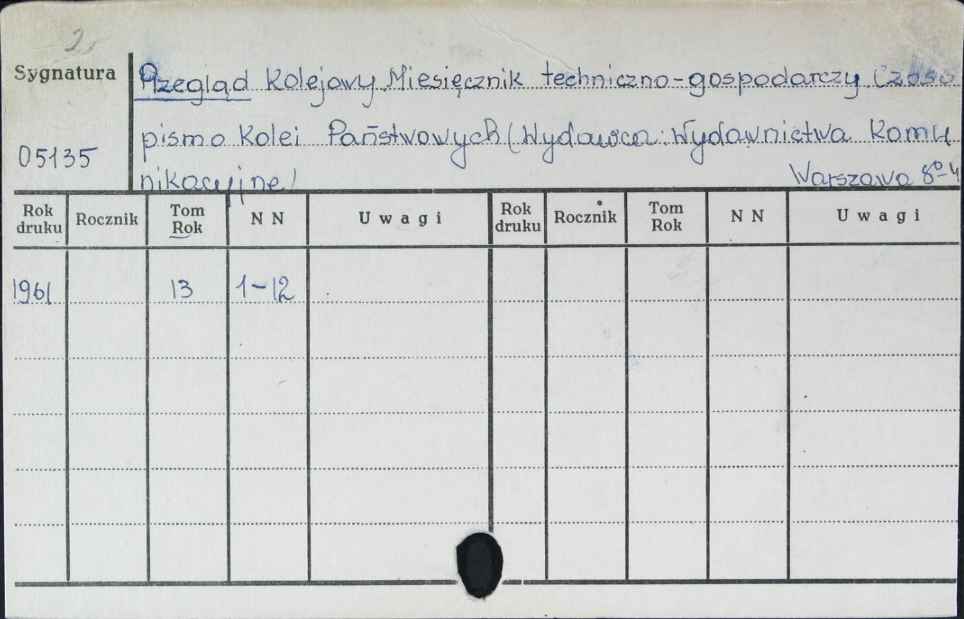 25
Sygnatura
Przegląd Kolejowy Miesięcznik techniczno-gospodarczy Czaso
05135
pismo Kolei Państwowych (Wydawca: Wydawnictwa Komu
nikacyjne) Warszawa 8º-4
Rok druku Rocznik Tom Rok N N Uwagi Rok druku Rocznik Tom Rok N N Uwagi
1961 13 1-12